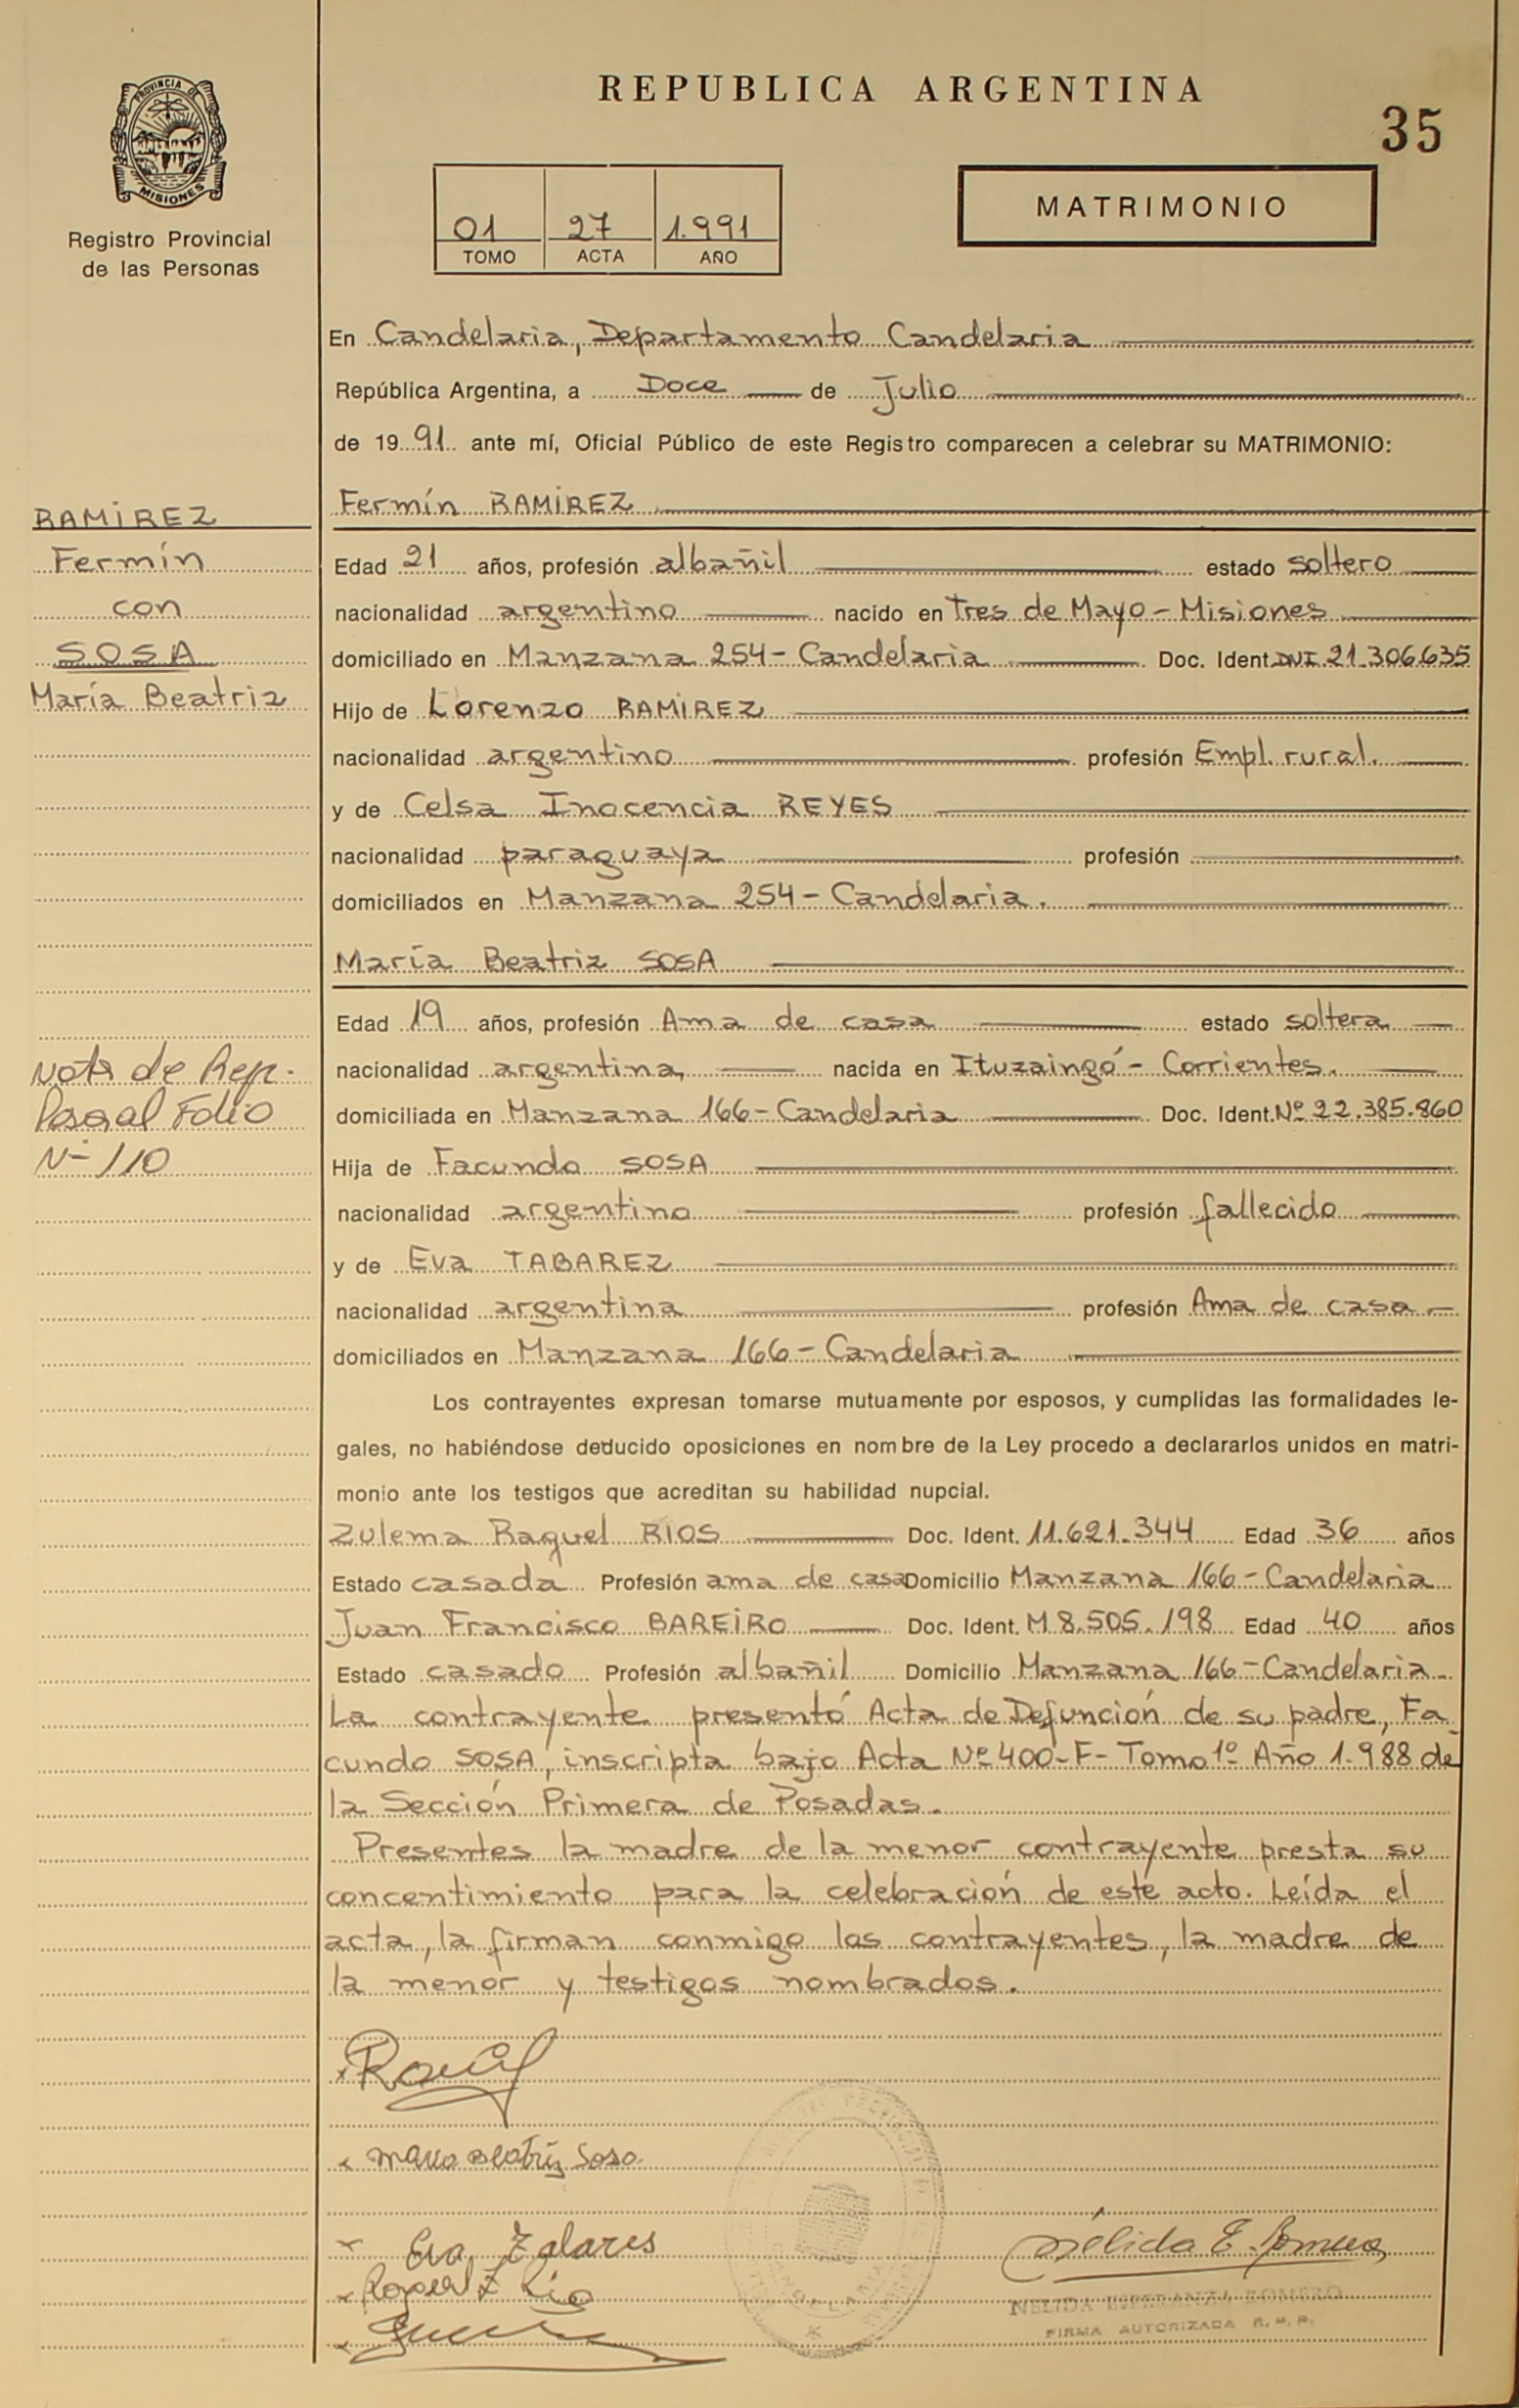 REPUBLICA ARGENTINA
35
PROVINCIA DE
MISIONES
Registro Provincial
de las Personas
01 27 1.991
TOMO ACTA AÑO
MATRIMONIO
En Candelaria, Departamento Candelaria
República Argentina, a Doce de Julio
de 19 91 ante mí, Oficial Público de este Registro comparecen a celebrar su MATRIMONIO:
RAMIREZ
Fermín
con
SOSA
María Beatriz
Fermín RAMIREZ
Edad 21 años, profesión albañil estado soltero
nacionalidad argentino nacido en Tres de Mayo - Misiones
domiciliado en Manzana 254 - Candelaria Doc. Ident. DNI 21.306.635
Hijo de Lorenzo RAMIREZ
nacionalidad argentino profesión Empl. rural.
y de Celsa Inocencia REYES
nacionalidad paraguaya profesión
domiciliados en Manzana 254 - Candelaria.
María Beatriz SOSA
Edad 19 años, profesión Ama de casa estado soltera
nacionalidad argentina, nacida en Ituzaingó - Corrientes.
domiciliada en Manzana 166 - Candelaria Doc. Ident. Nº 22.385.860
Hija de Facundo SOSA
nacionalidad argentino profesión fallecido
y de Eva TABAREZ
nacionalidad argentina profesión Ama de casa -
domiciliados en Manzana 166 - Candelaria
Nota de Rep.
al Folio
Nº 110
Los contrayentes expresan tomarse mutuamente por esposos, y cumplidas las formalidades le-
gales, no habiéndose deducido oposiciones en nombre de la Ley procedo a declararlos unidos en matri-
monio ante los testigos que acreditan su habilidad nupcial.
Zulema Raquel RIOS Doc. Ident. 11.621.344 Edad 36 años
Estado casada Profesión ama de casa Domicilio Manzana 166 - Candelaria
Juan Francisco BAREIRO Doc. Ident. M 8.505.198 Edad 40 años
Estado casado Profesión albañil Domicilio Manzana 166 - Candelaria -
La contrayente presentó Acta de Defunción de su padre, Fa-
cundo SOSA, inscripta bajo Acta Nº 400-F- Tomo 1º Año 1.988 de
la Sección Primera de Posadas.
Presentes la madre de la menor contrayente presta su
concentimiento para la celebración de este acto. Leída el
acta, la firman conmigo los contrayentes, la madre de
la menor y testigos nombrados.
Maria Beatriz Sosa
Eva
Nélida E. Romero
NELIDA ESPERANZA ROMERO
FIRMA AUTORIZADA R. P. P.